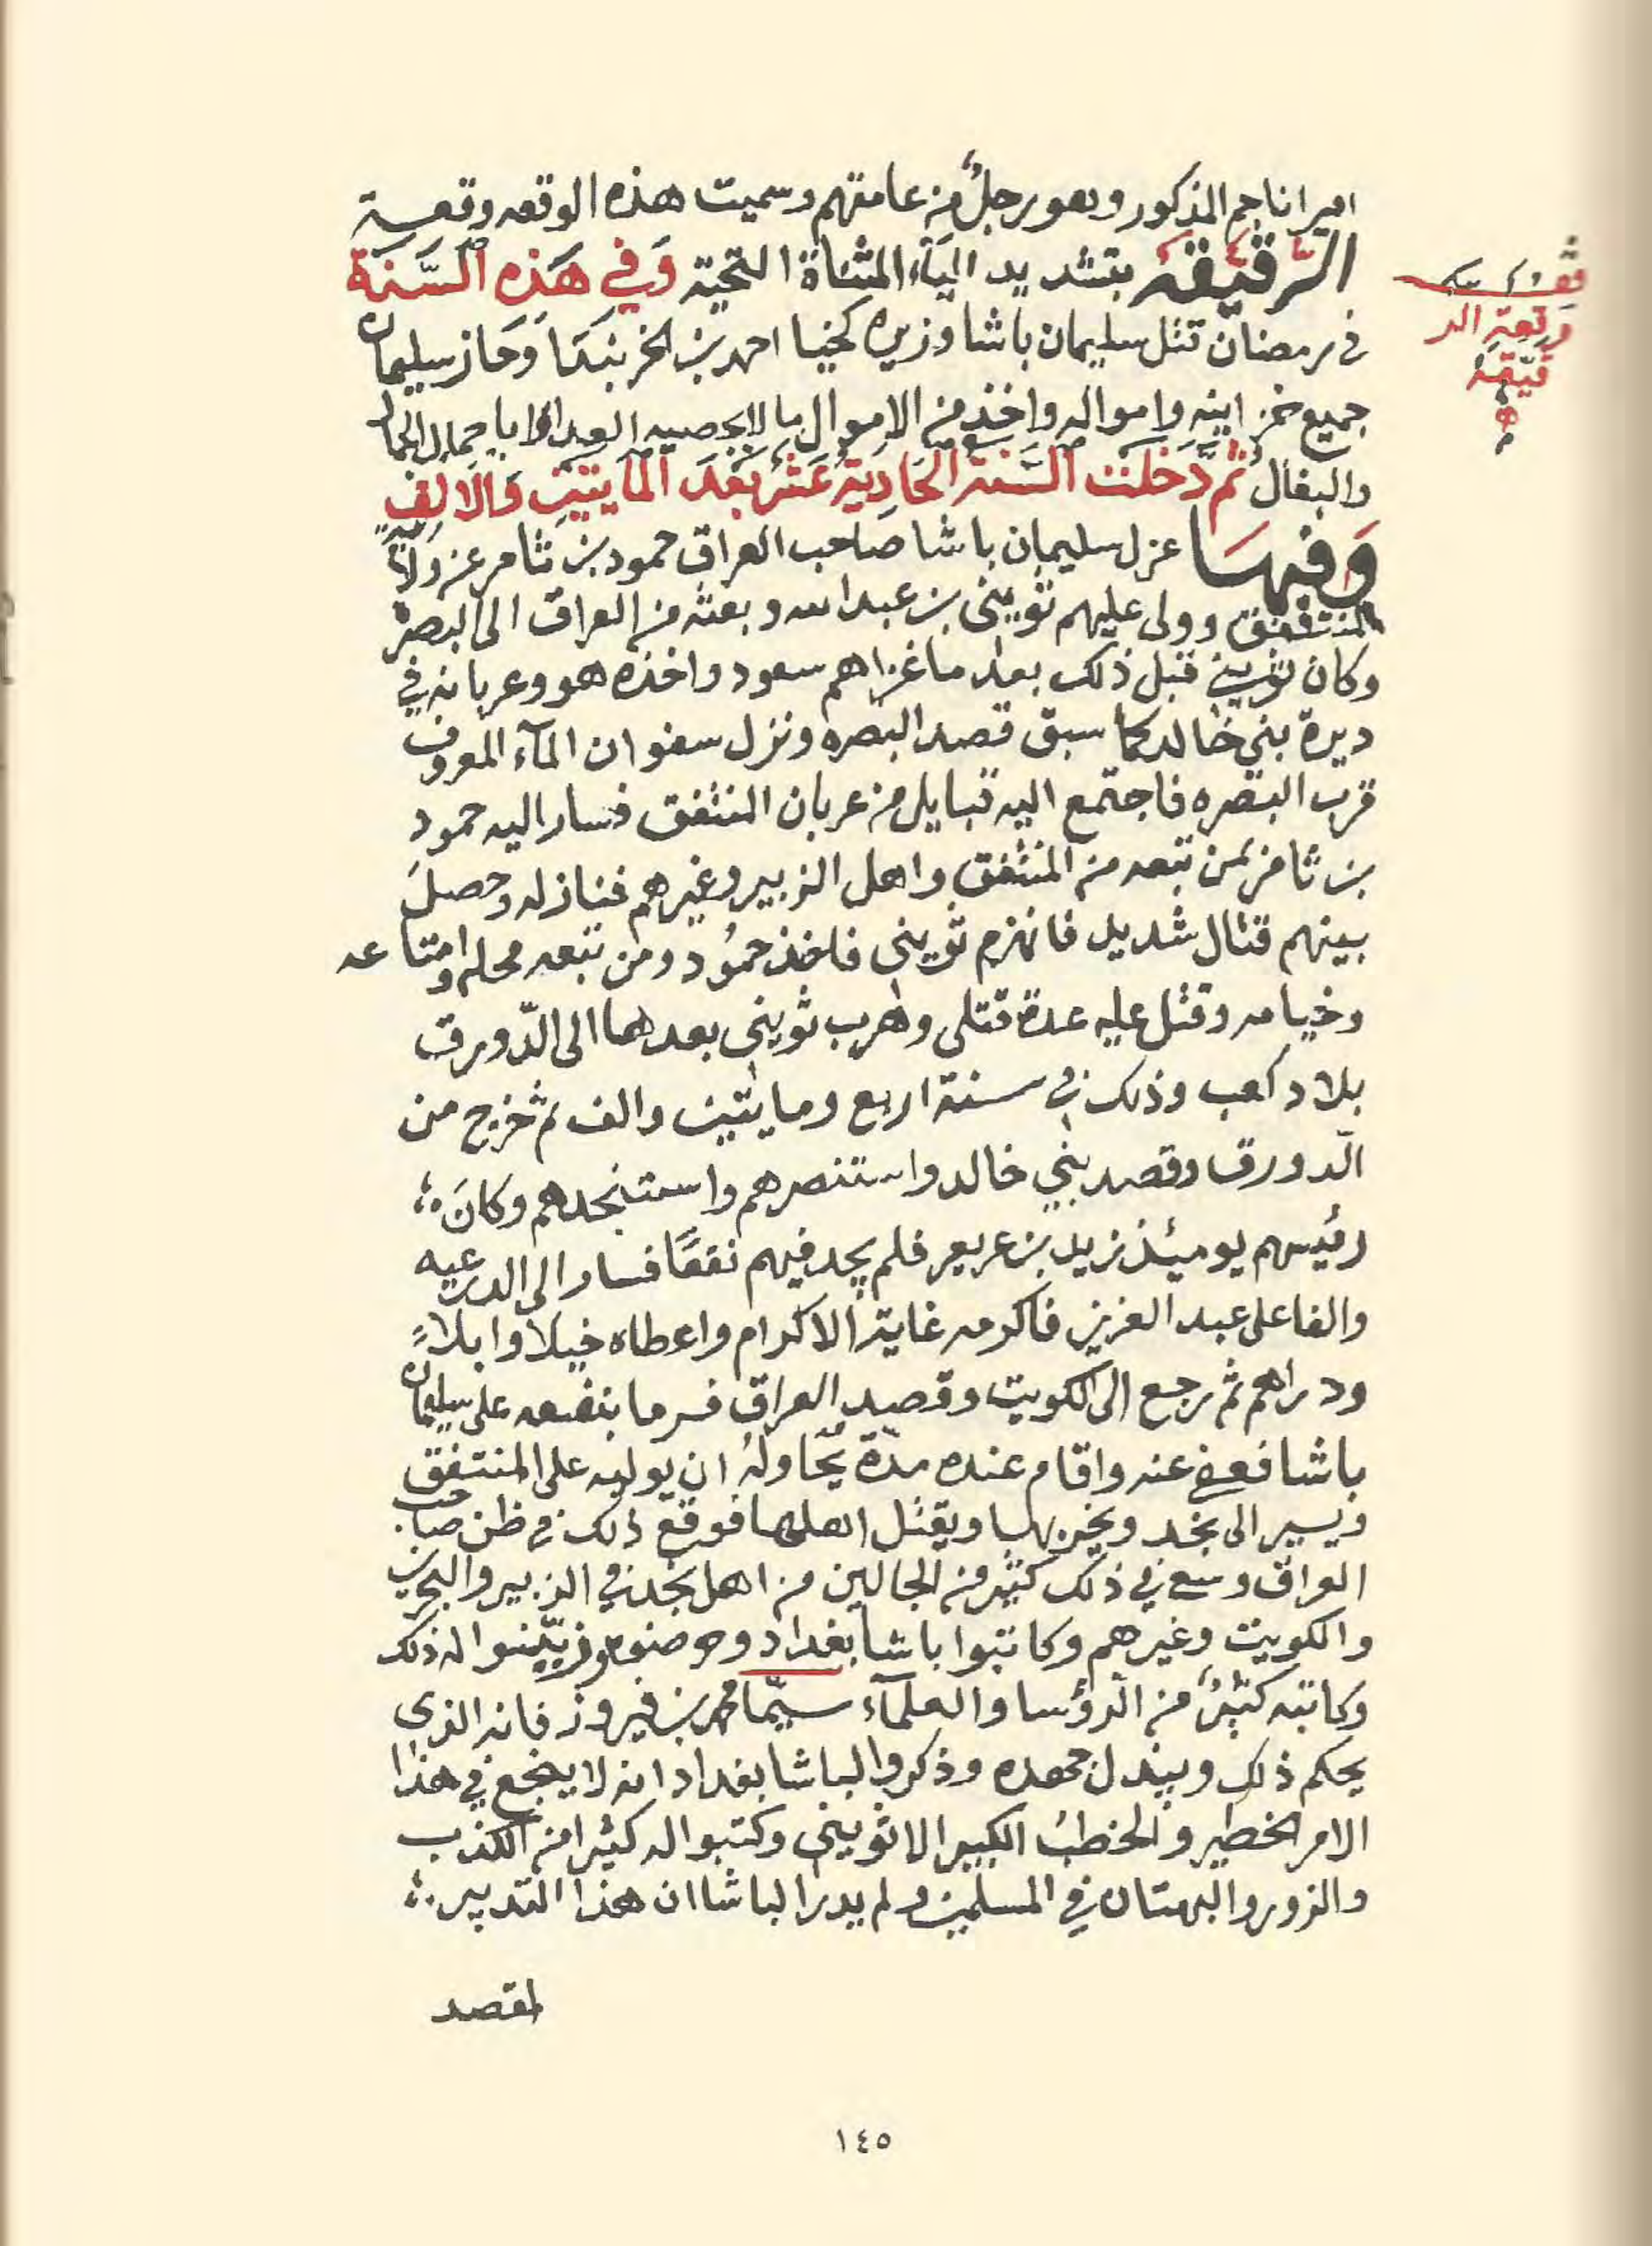 اميرا ناجم المذكور وهو رجلٌ من عامتهم وسميت هذه الوقعه وقعـة
الرقيّقة بتشديد اليآء المثناة التحتية وَفي هَذِه السَّنَة
في رمضان قتل سليمان باشا وزيره كخيا احمد بن الخربندَا وَحَاز سليمان
جميع خزاينه وامواله واخذ من الاموال ما لا يحصيه العد الا باحمال الجمال
والبغال ثم دَخلت السَّنة الحَادِية عَشر بَعْدَ المايتَيْن وَالالف
وَفيهَا عزل سليمان باشا صَاحب العراق حمود بن ثامر عن ولاية
المنتفق وولى عليهم ثويني بن عبدالله وبعثه من العراق الى البصرة
وكان ثويني قبل ذلك بعد ما غزاهم سعود واخذه هو وعربانه في
ديرة بني خالد كما سبق قصد البصره ونزل سفوان المآء المعروف
قرب البصره فاجتمع اليه قبايل من عربان المنتفق فسار اليه حمود
بن ثامر بمن تبعه من المنتفق واهل الزبير وغيرهم فنازله وحصلَ
بينهم قتال شديد فانهزم ثويني فاخذ حمُود ومن تبعه محله وامتاعه
وخيامه وقتل عليه عدة قتلى وهرب ثويني بعدهما الى الدّورق
بلاد كعب وذلك في سنة اربع ومايتين والف ثم خرج من
الدّورق وقصد بني خالد واستنصرهم واستنجدهم وكانَ
رئيسهم يومئذ زيد بن عريعر فلم يجد فيهم نفعًا فسار الى الدرعيه
والفا على عبد العزيز فاكرمه غاية الاكرام واعطاه خيلا وابلاً
ودراهم ثم رجع الى الكويت وقصد العراق فرما بنفسه على سليمان
باشا فعفى عنه واقام عنده مدّة يحَاولهُ ان يوليه على المنتفق
ويسير الى نجد ويخربها ويقتل اهلها فوقع ذلك في ظن صاحب
العراق وسعى في ذلك كثير من الجالين من اهل نجد في الزبير والبحرين
والكويت وغيرهم وكاتبوا باشا بغداد وحرضوه وزيّنوا له ذلك
وكاتبه كثيرٌ من الرؤسا والعلمآء سيّما محمد بن فيروز فانه الذي
يحكم ذلك ويبذل جهده وذكروا لباشا بغداد انه لا ينجع في هذا
الامر الخطير والخطبُ الكبير الا ثويني وكتبوا له كثيرا من الكذب
والزور والبهتان في المسلمين ولم يدر الباشا ان هذا التدبير
لمقصد
وقعة الر
قيّقة
١٤٥